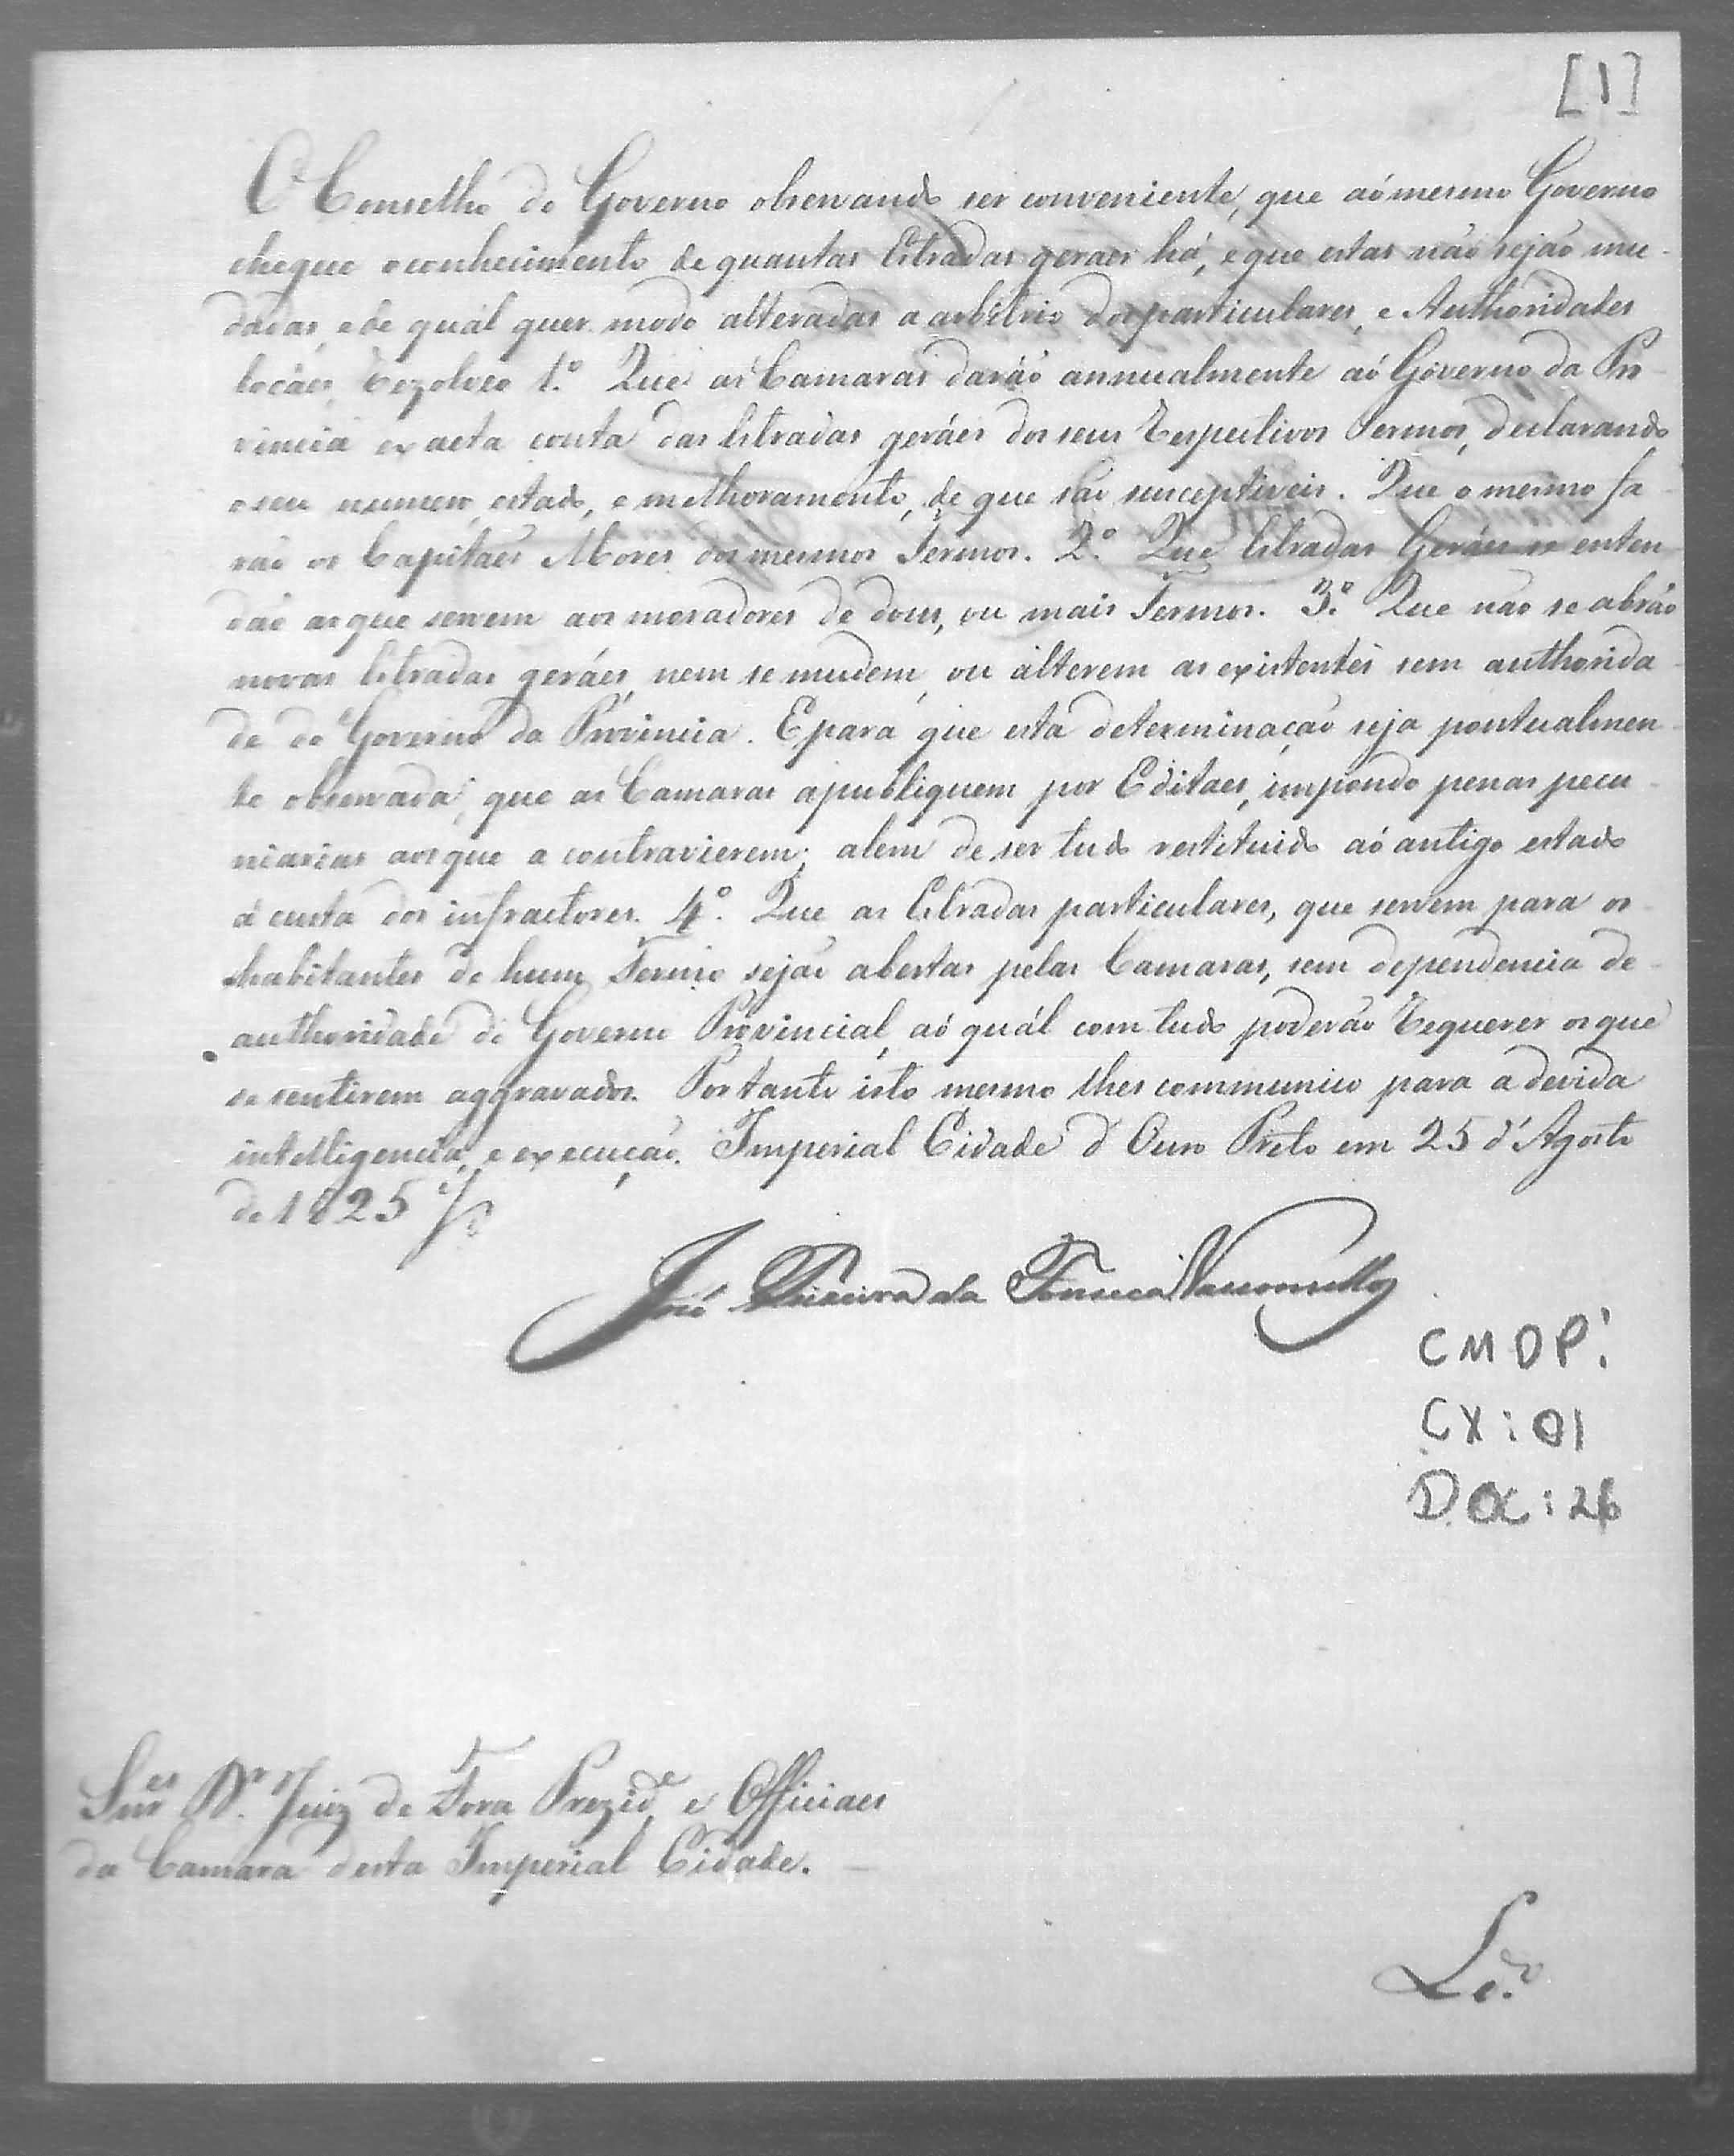 [1]
O Conselho do Governo observando ser conveniente, que aó mesmo Governo
chegue o conhecimento de quantas Estradas geraes há, e que estas não sejão mu-
dadas, e de quál quer modo alteradas a arbitrio dos particulares, e Authoridades
locáes, Rezolveo 1.º Que as Camaras darão annualmente aó Governo da Pro-
vincia exacta conta das Estradas geráes dos seus Respectivos Termos, declarando
o seu numero, estado, e melhoramento, de que são susceptiveis. Que o mesmo fa-
rão os Capitães Mores dos mesmos Termos. 2.º Que Estradas Geráes se enten-
dão as que servem aos moradores de dous, ou mais Termos. 3.º Que não se abrão
novas Estradas geráes, nem se mudem, ou álterem as existentes sem authorida-
de do Governo da Provincia. E para que esta determinação seja pontualmen-
te observada, que as Camaras a publiquem por Editaes, impondo penas pecu-
niarias aos que a contravierem; alem de ser tudo restituido aó antigo estado
á custa dos infractores. 4.º Que as Estradas particulares, que servem para os
habitantes de hum Termo sejão abertas pelas Camaras, sem dependencia de
authoridade do Governo Provincial, aó quál com tudo poderão Requerer os que
se sentirem aggravados. Portanto isto mesmo lhes communico para a devida
intelligencia, e execução. Imperial Cidade d'Ouro Preto em 25 d'Agosto
de 1825
José Teixeira da Fonseca Vasconcellos
CMOP:
CX: 01
DOC: 26
Snr.es D.r Juiz de Fora Prezid.e e Officiaes
da Camara desta Imperial Cidade.